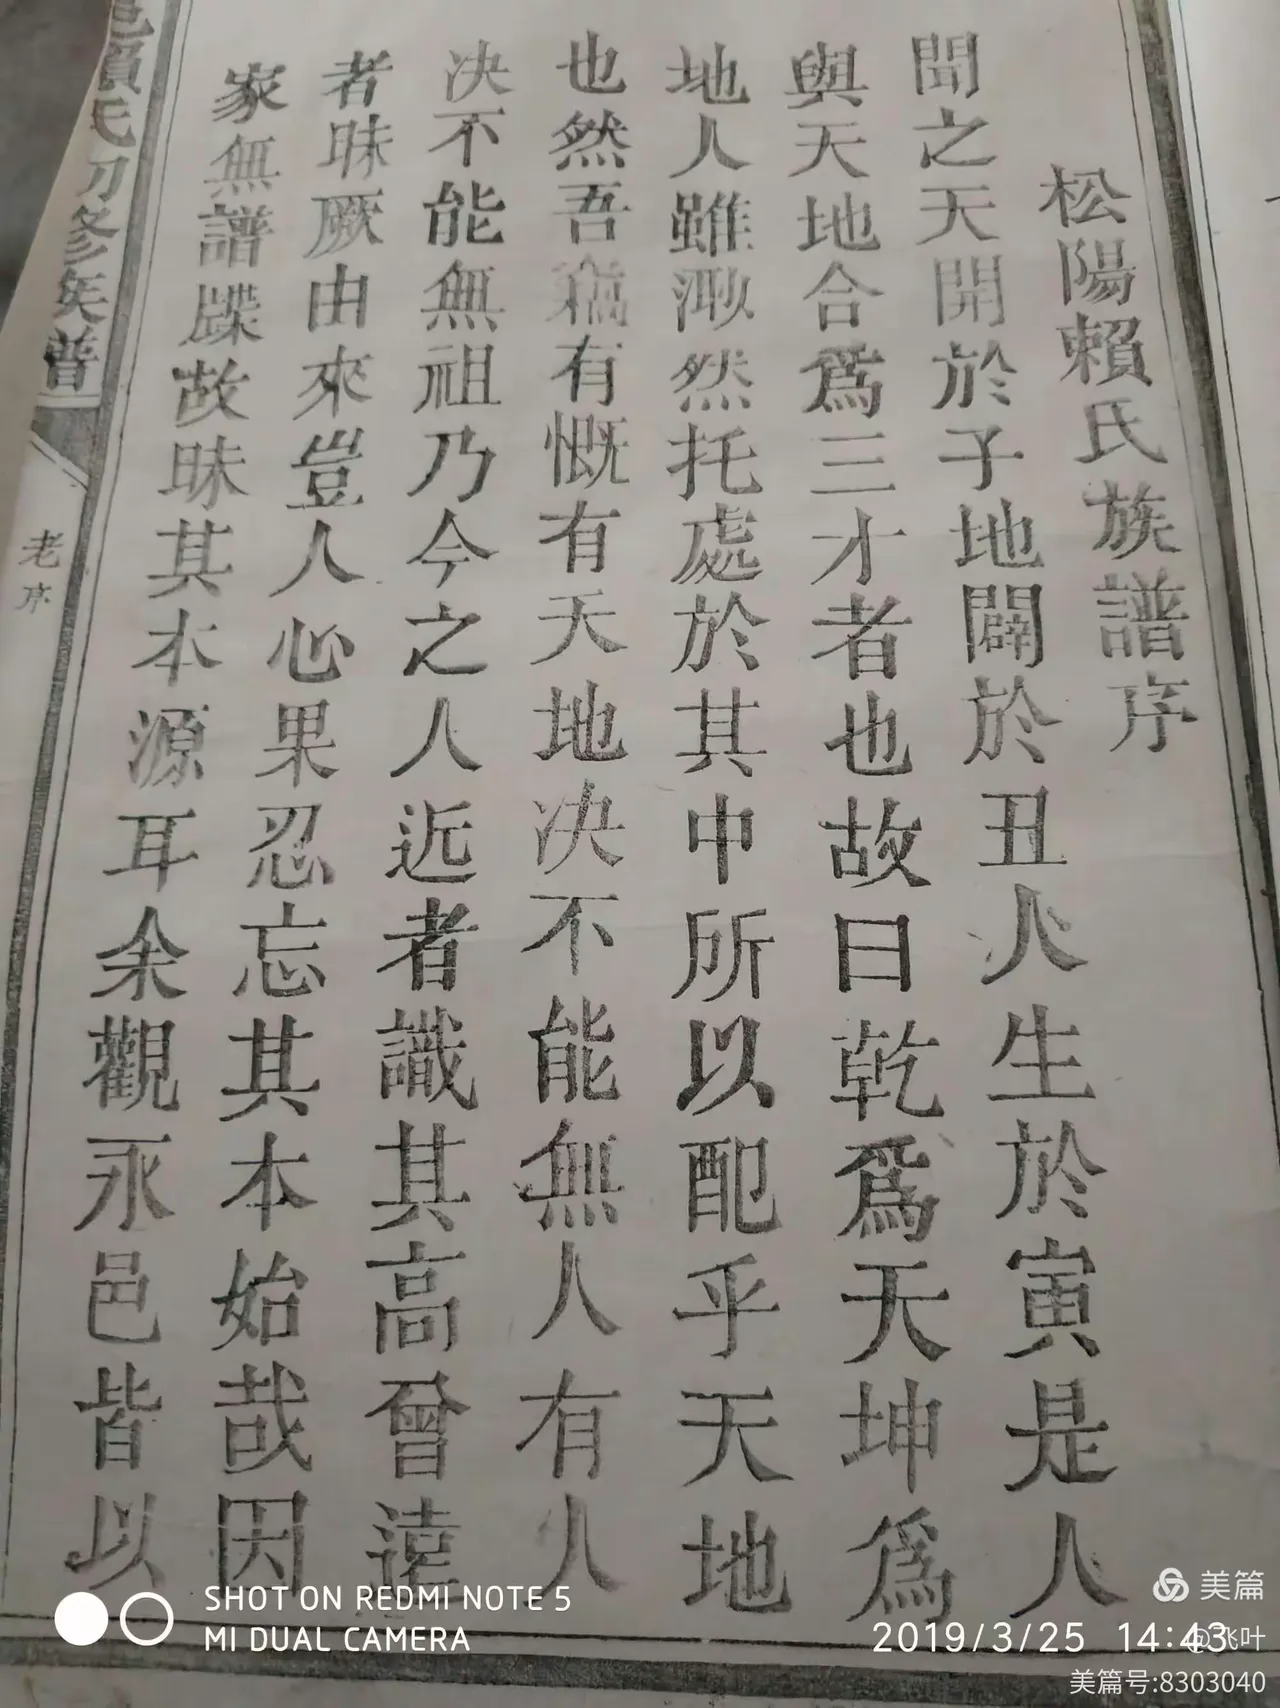 松陽賴氏族譜序
聞之天開於子地闢於丑人生於寅是人
與天地合爲三才者也故曰乾爲天坤爲
地人雖渺然托處於其中所以配乎天地
也然吾竊有慨有天地决不能無人有人
决不能無祖乃今之人近者識其高曾遠
者昧厥由來豈人心果忍忘其本始哉因
家無譜牒故昧其本源耳余觀永邑皆以
邑賴氏初修族譜
老序
SHOT ON REDMI NOTE 5
MI DUAL CAMERA
2019/3/25 14:43
美篇
美篇号:8303040